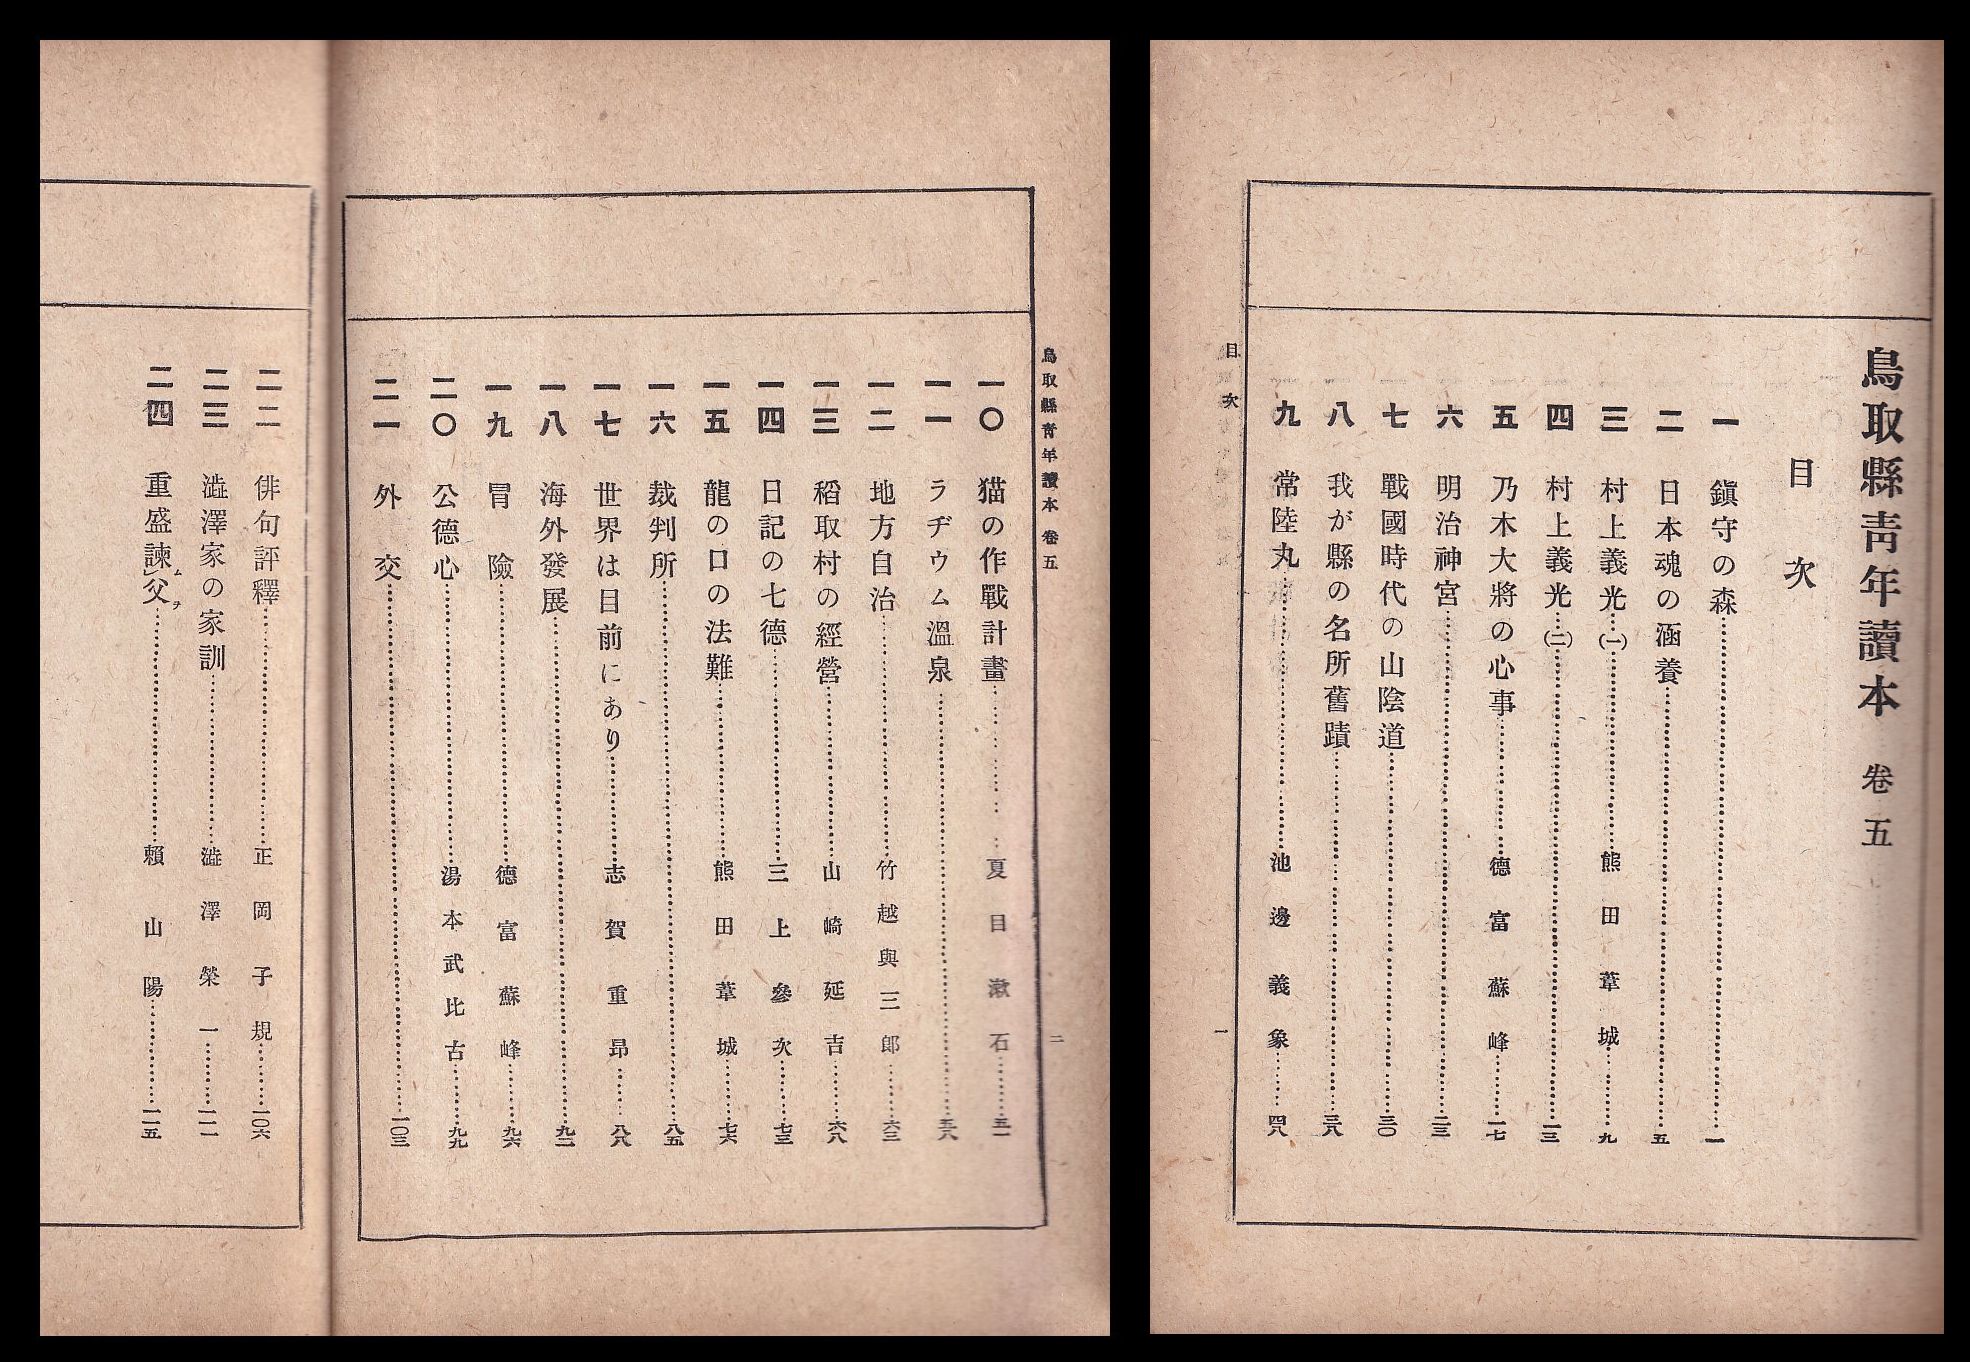 鳥取縣靑年讀本 卷五
目次
一 鎭守の森……一
二 日本魂の涵養……五
三 村上義光㈠……熊田葦城……九
四 村上義光㈡……一三
五 乃木大將の心事……德富蘇峰……一七
六 明治神宮……二三
七 戰國時代の山陰道……三〇
八 我が縣の名所舊蹟……三八
九 常陸丸……池邊義象……四八
目次
一
鳥取縣靑年讀本 卷五
二
一〇 猫の作戰計畫……夏目漱石……五一
一一 ラヂウム溫泉……五八
一二 地方自治……竹越與三郎……六三
一三 稻取村の經營……山崎延吉……六八
一四 日記の七德……三上參次……七三
一五 龍の口の法難……熊田葦城……七六
一六 裁判所……八五
一七 世界は目前にあり……志賀重昂……八八
一八 海外發展……九二
一九 冒險……德富蘇峰……九六
二〇 公德心……湯本武比古……九九
二一 外交……一〇三
二二 俳句評釋……正岡子規……一〇六
二三 澁澤家の家訓……澁澤榮一……一一一
二四 重盛諫ム父ヲ……賴山陽……一一五